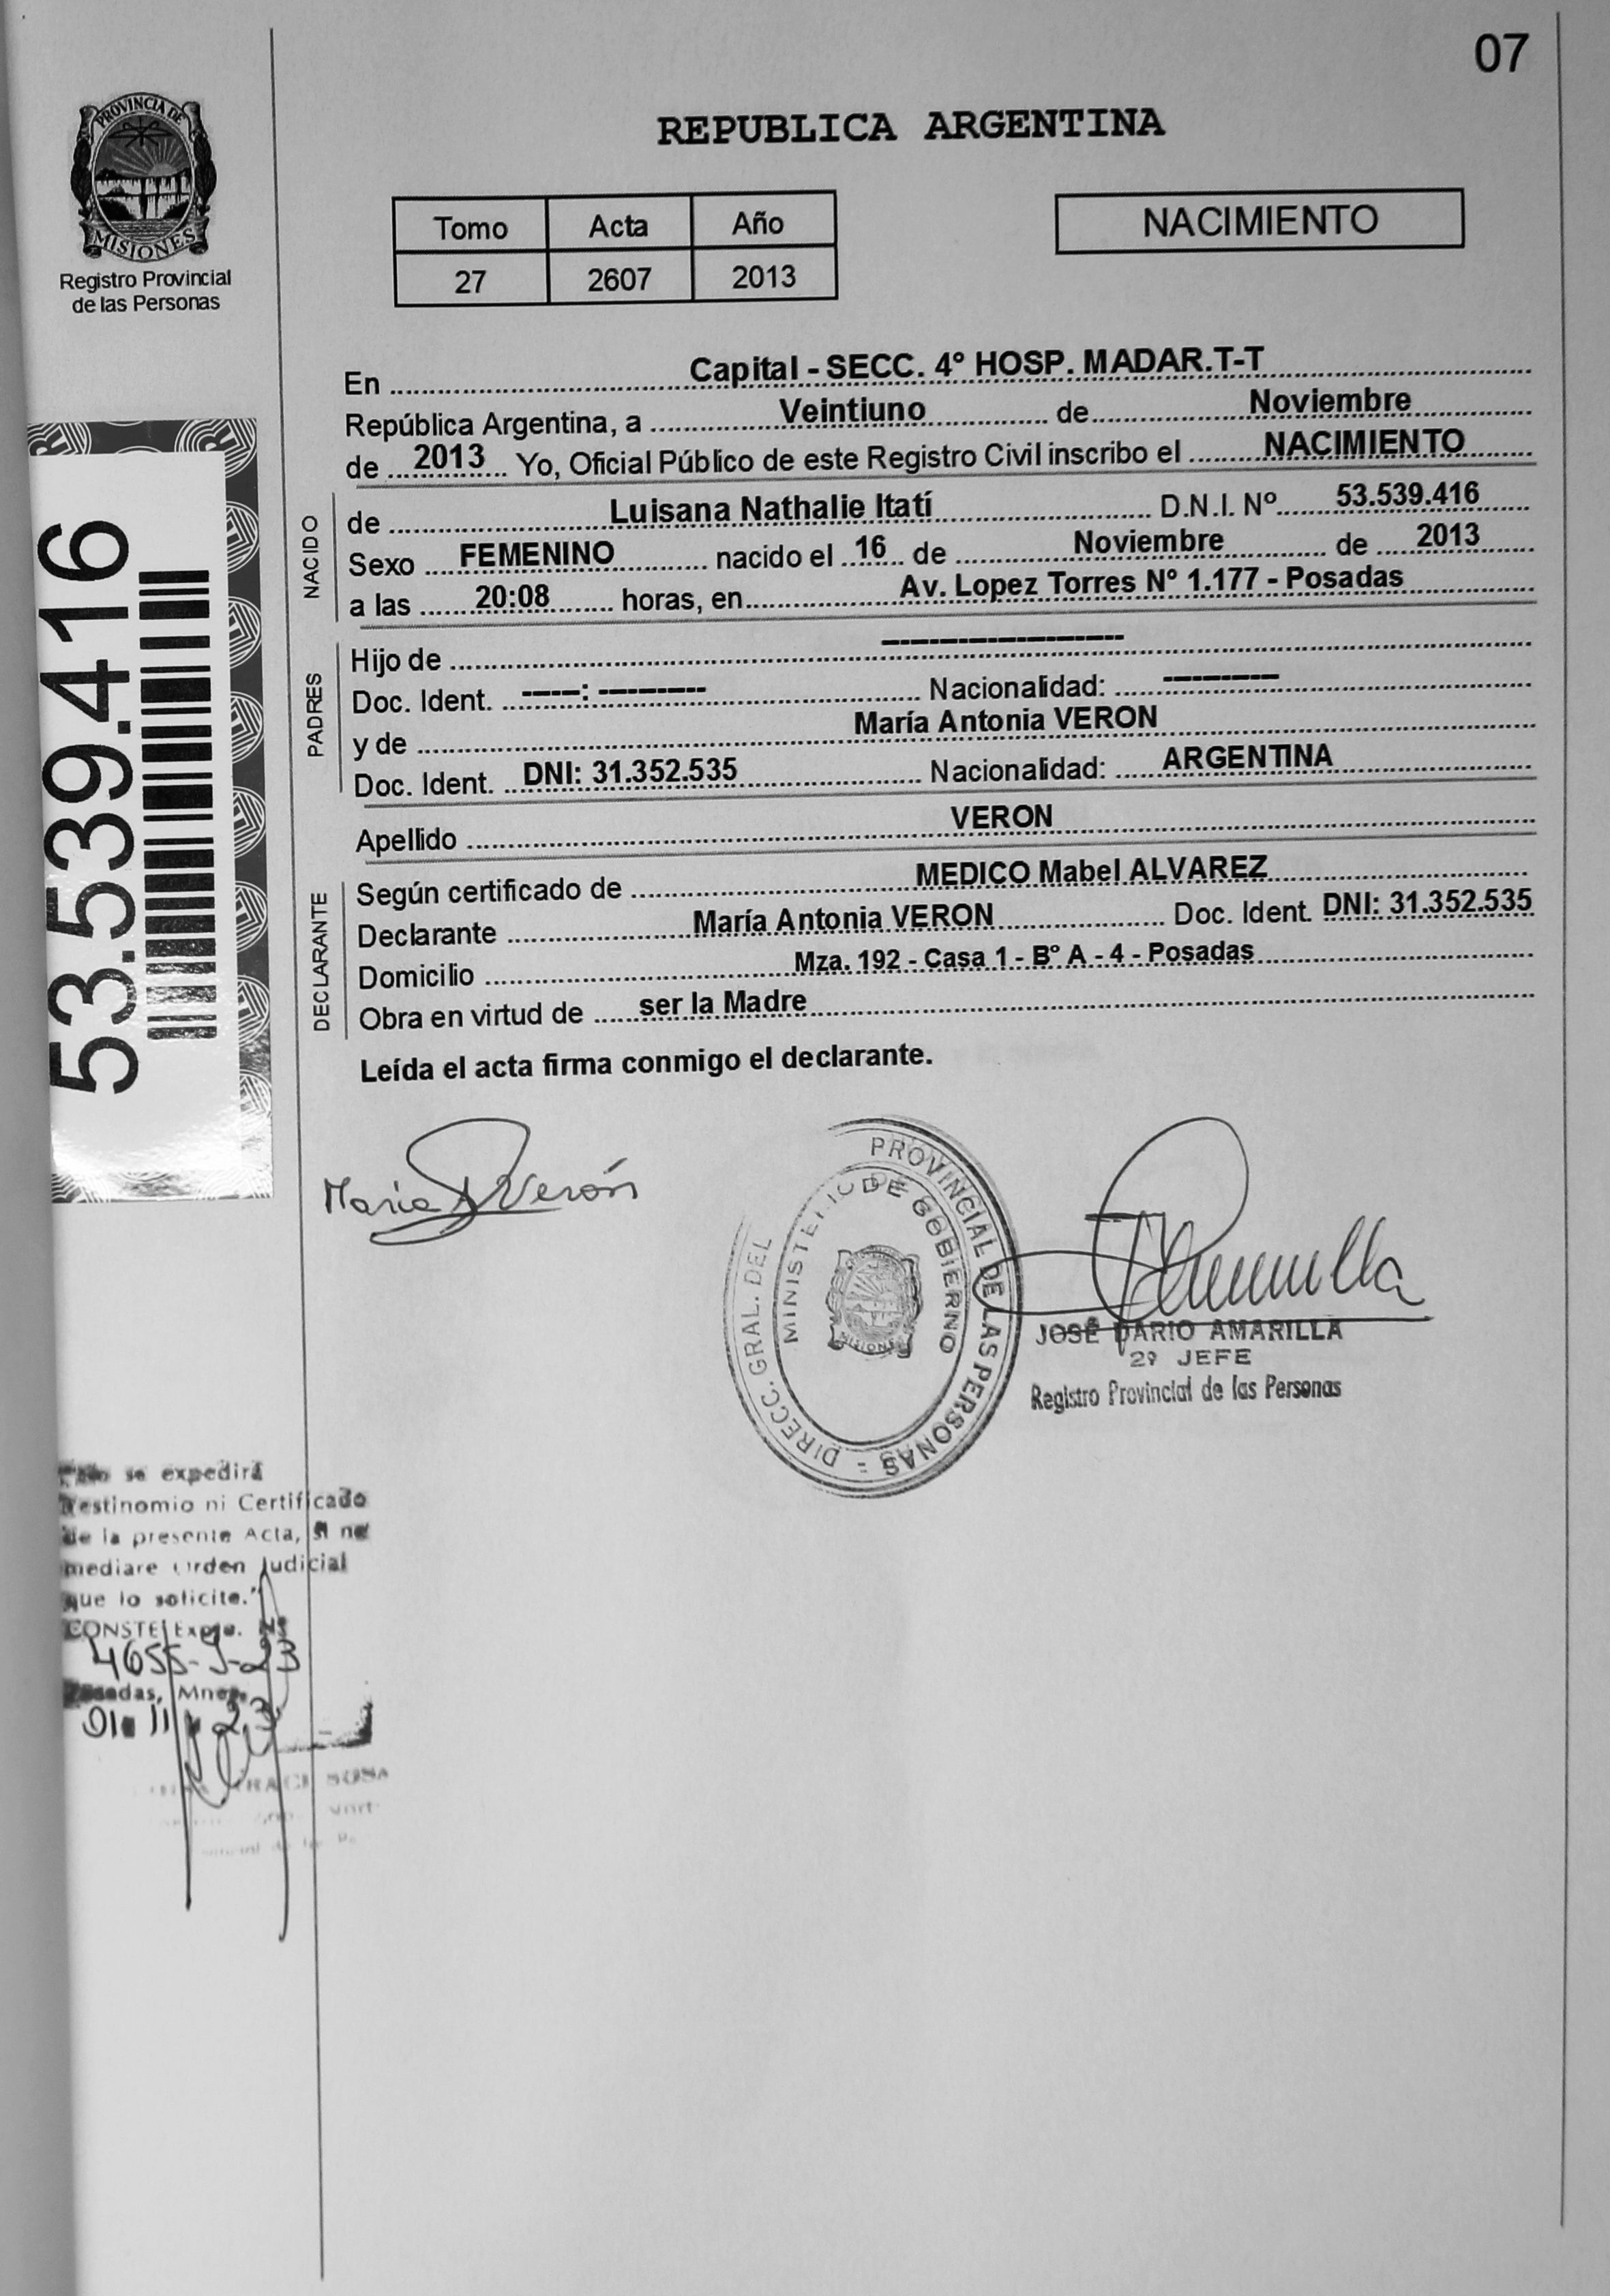 07
PROVINCIA DE
MISIONES
Registro Provincial
de las Personas
REPUBLICA ARGENTINA
Tomo Acta Año
27 2607 2013
NACIMIENTO
En Capital - SECC. 4° HOSP. MADAR.T-T
República Argentina, a Veintiuno de Noviembre
de 2013 Yo, Oficial Público de este Registro Civil inscribo el NACIMIENTO
NACIDO
de Luisana Nathalie Itatí D.N.I. Nº 53.539.416
Sexo FEMENINO nacido el 16 de Noviembre de 2013
a las 20:08 horas, en Av. Lopez Torres Nº 1.177 - Posadas
PADRES
Hijo de -----------------------
Doc. Ident. -----: ---------- Nacionalidad: -----------
y de María Antonia VERON
Doc. Ident. DNI: 31.352.535 Nacionalidad: ARGENTINA
Apellido VERON
DECLARANTE
Según certificado de MEDICO Mabel ALVAREZ
Declarante María Antonia VERON Doc. Ident. DNI: 31.352.535
Domicilio Mza. 192 - Casa 1 - B° A - 4 - Posadas
Obra en virtud de ser la Madre
Leída el acta firma conmigo el declarante.
53.539.416
Maria A Verón
DIRECC. GRAL. DEL PROVINCIAL DE LAS PERSONAS -
MINISTERIO DE GOBIERNO
MISIONES
JOSÉ DARIO AMARILLA
2º JEFE
Registro Provincial de las Personas
se expedirá
Testinomio ni Certificado
de la presente Acta, si no
mediare Orden Judicial
que lo solicite."
CONSTE Expte. Nº
4655-J-23
Posadas, Mnes.
01 11 23
SOSA